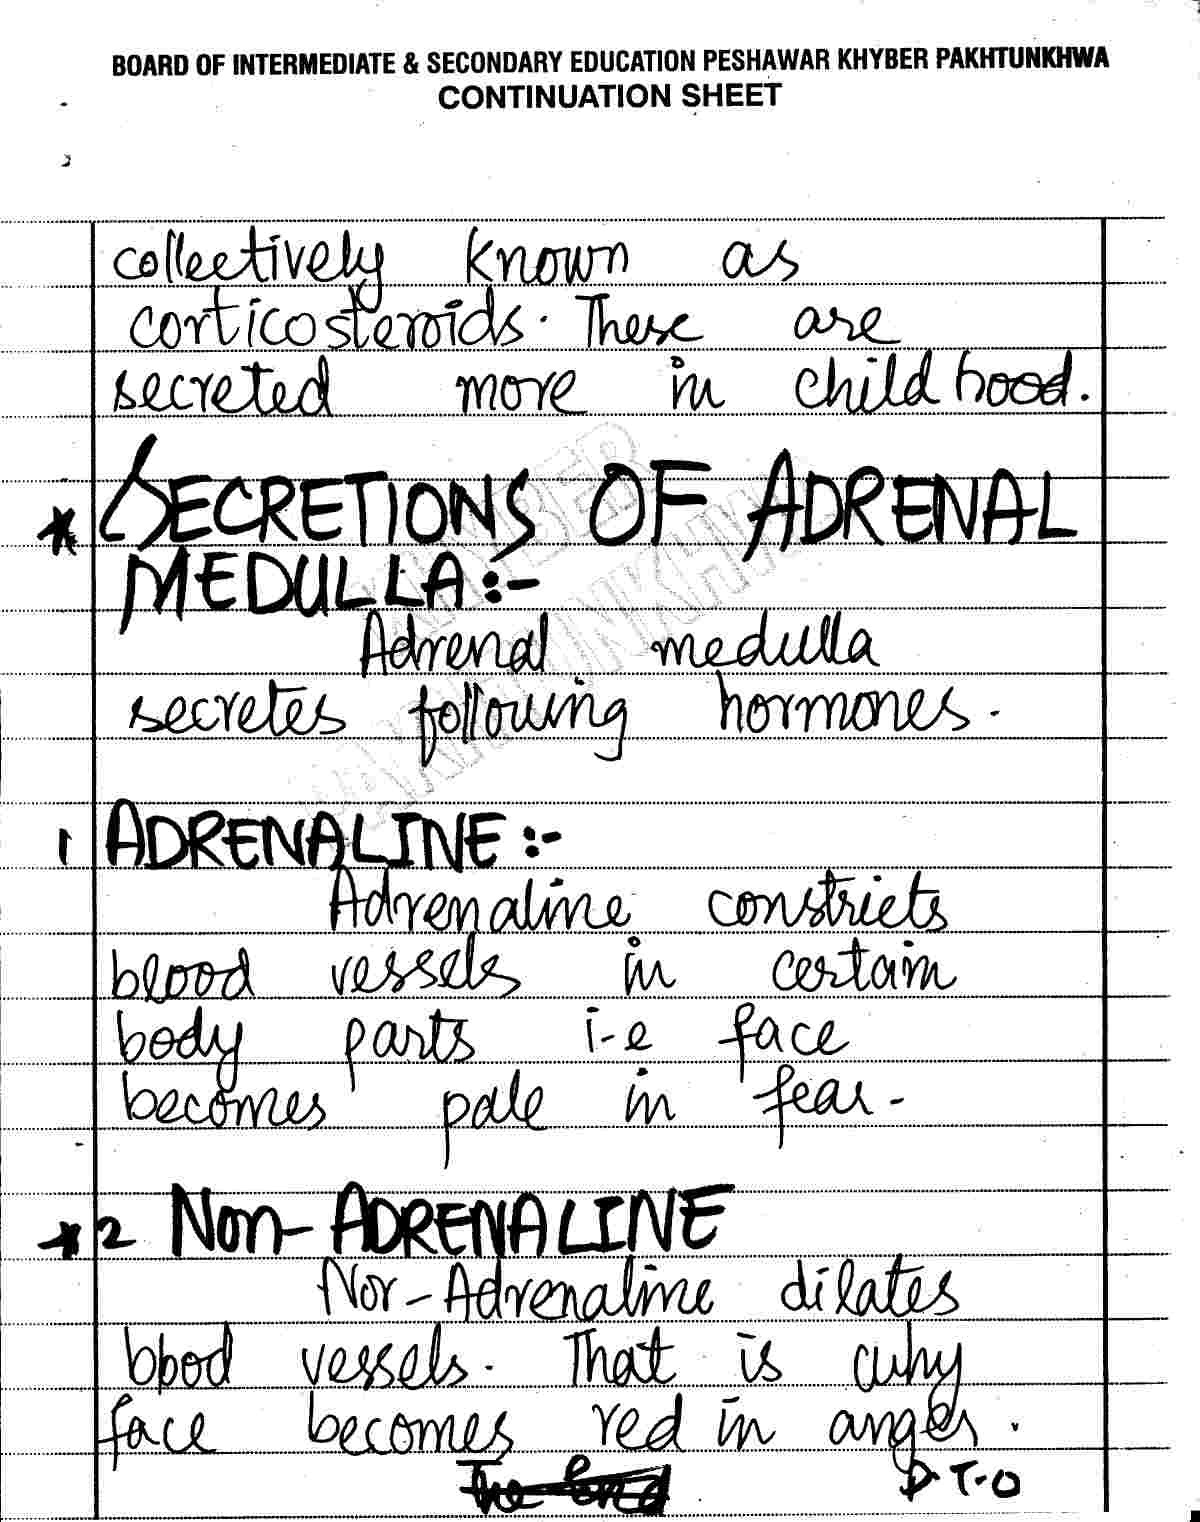 BOARD OF INTERMEDIATE & SECONDARY EDUCATION PESHAWAR KHYBER PAKHTUNKHWA
CONTINUATION SHEET
collectively known as
corticosteroids. These are
secreted more in childhood.
* SECRETIONS OF ADRENAL
MEDULLA:-
Adrenal medulla
secretes following hormones.
1 ADRENALINE:-
Adrenaline constricts
blood vessels in certain
body parts i-e face
becomes pale in fear.
* 2 Non-ADRENALINE
Nor-Adrenaline dilates
blood vessels. That is why
face becomes red in anger.
The End
P.T.O
KHYBER
PAKHTUNKHWA